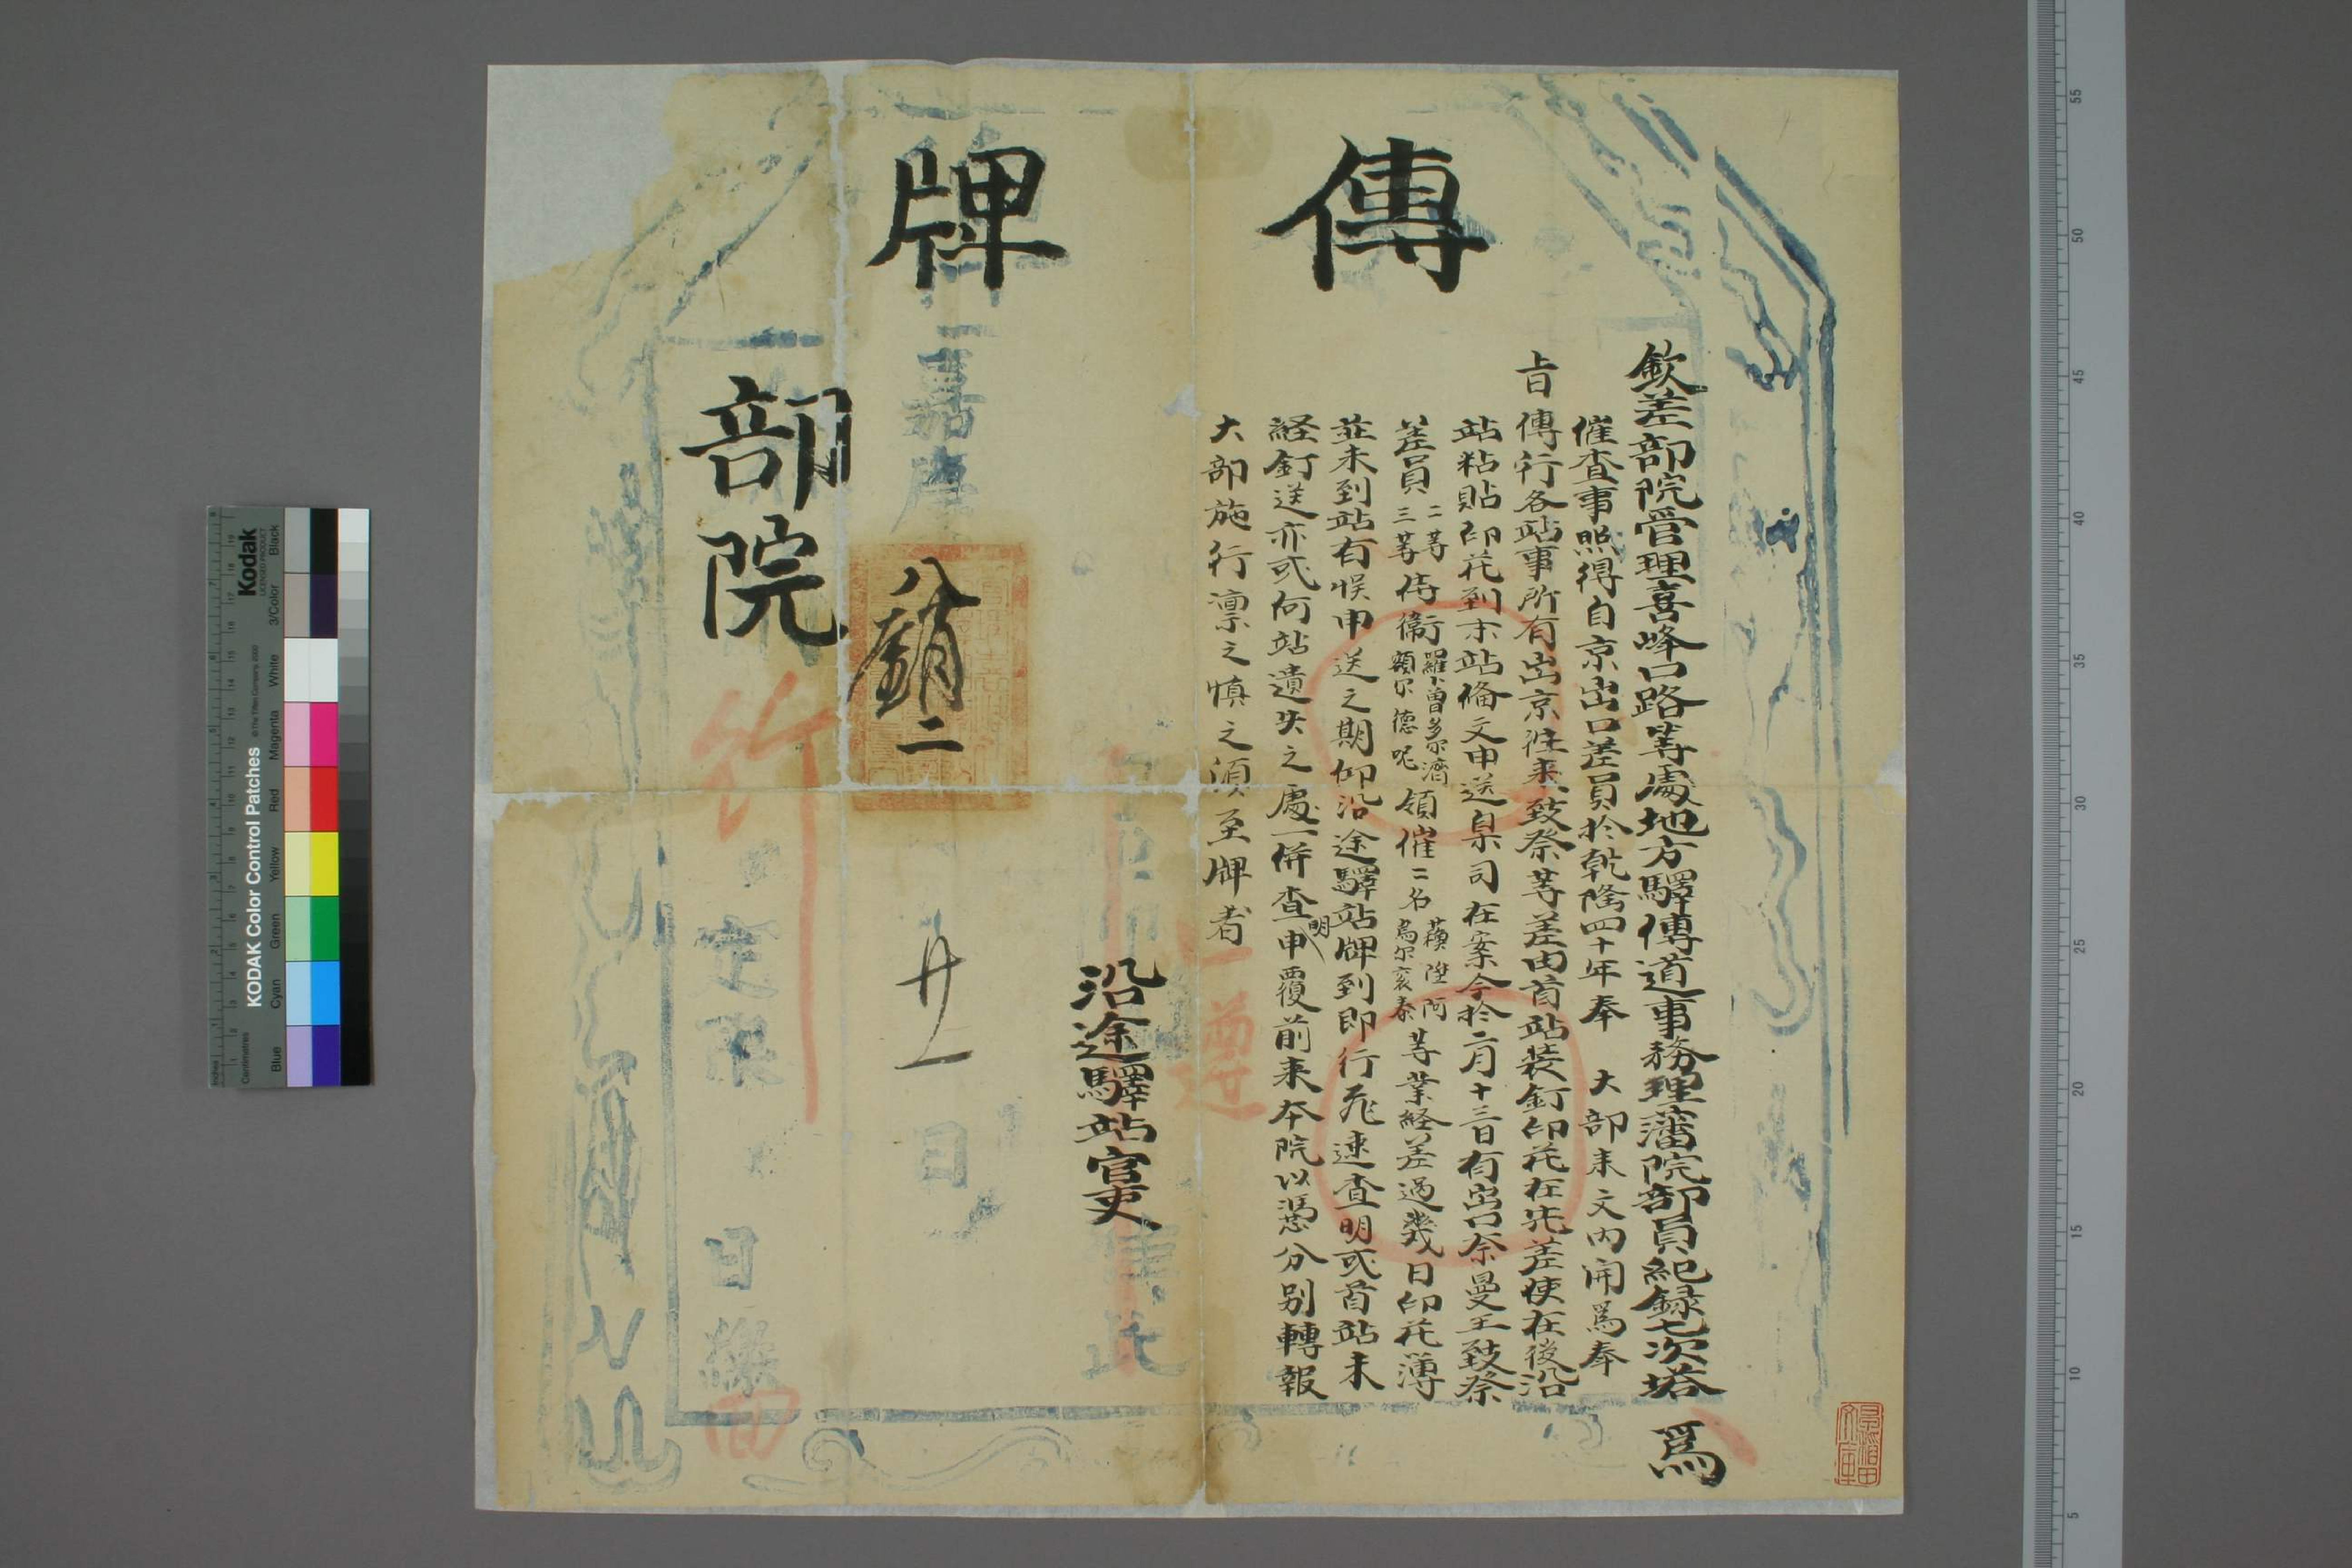 傳牌
欽差部院管理喜峰口路等處地方驛傳道事務理藩院部員紀録七次塔 爲
催查事照得自京出口差員於乾隆四十年奉 大部来文内開爲奉
旨傳行各站事所有出京往来致祭等差由首站裝釘印花在先差使在後沿
站粘貼印花到末站俻文申送臬司在案今於二月十三日有出口奈曼王致祭
差員二等三等侍衛羅卜曽多尔濟額尔德呢領催二名 陞阿烏尔衮泰等業経差過幾日印花薄
並未到站有悞申送之期仰沿途驛站牌到即行飛速查明或首站未
経釘送亦或何站遺失之處一併查明申覆前来本院以憑分别轉報
大部施行凛之慎之須至牌者
一遵
沿途驛站官吏
嘉慶
八 二
廿一
日
部院
行
定限 日繳